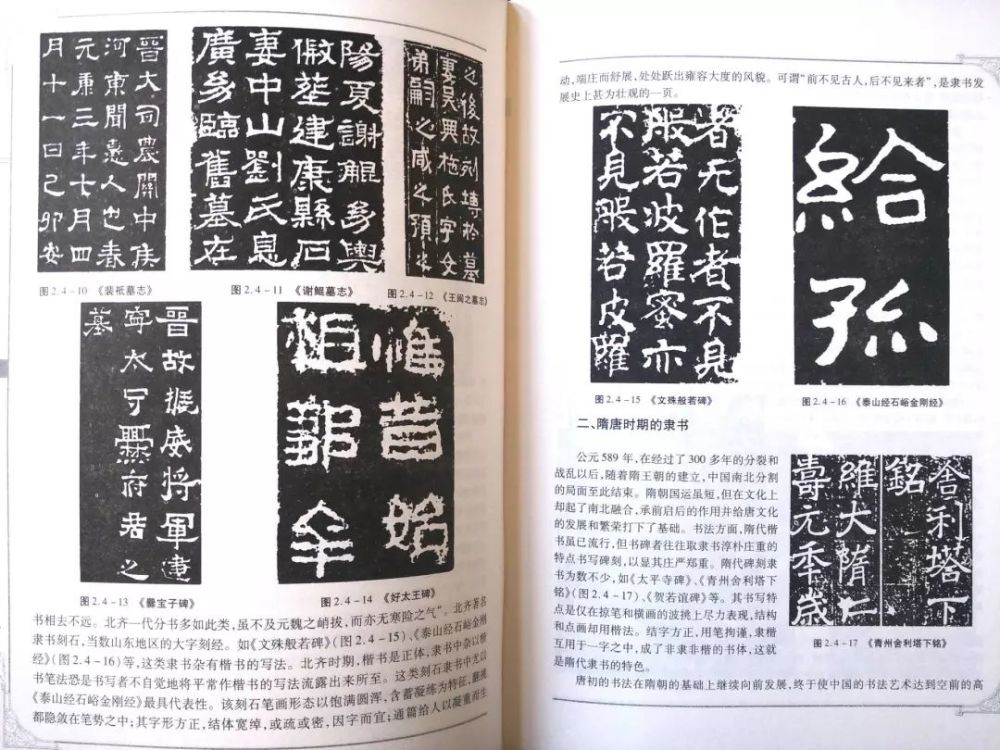 晉大司農關中侯
河東聞憙人也春
元康三年七月四
月十一日己卯安
图 2.4-10 《裴祗墓志》
陽夏謝鯤幼輿
假塟建康縣石
妻中山劉氏息
廣幼臨舊墓在
图 2.4-11 《谢鲲墓志》
之後故刻塼於墓
妻吳興施氏字女
弟嗣之咸之預之
图 2.4-12 《王闽之墓志》
晉故振威將軍建
寧太守爨府君之
墓
图 2.4-13 《爨宝子碑》
惟昔始
祖鄒牟
图 2.4-14 《好太王碑》
书相去不远。北齐一代分书多如此类,虽不及元魏之峭拔,而亦无寒险之气"。北齐著名
隶书刻石,当数山东地区的大字刻经。如《文殊般若碑》(图 2.4-15)、《泰山经石峪金刚
经》(图 2.4-16)等,这类隶书杂有楷书的写法。北齐时期,楷书是正体,隶书中杂以楷
书笔法恐是书写者不自觉地将平常作楷书的写法流露出来所至。这类刻石隶书中尤以
《泰山经石峪金刚经》最具代表性。该刻石笔画形态以饱满圆浑,含蓄凝练为特征,飘逸
都隐敛在笔势之中;其字形方正,结体宽绰,或疏或密,因字而宜;通篇给人以凝重而生
动,端庄而舒展,处处跃出雍容大度的风貌。可谓"前不见古人,后不见来者",是隶书发
展史上甚为壮观的一页。
者无作者不見
般若波羅蜜亦
不見般若波羅
图 2.4-15 《文殊般若碑》
給孫
图 2.4-16 《泰山经石峪金刚经》
二、隋唐时期的隶书
公元 589 年,在经过了 300 多年的分裂和
战乱以后,随着隋王朝的建立,中国南北分割
的局面至此结束。隋朝国运虽短,但在文化上
却起了南北融合,承前启后的作用并给唐文化
的发展和繁荣打下了基础。书法方面,隋代楷
书虽已流行,但书碑者往往取隶书淳朴庄重的
特点书写碑刻,以显其庄严郑重。隋代碑刻隶
书为数不少,如《太平寺碑》、《青州舍利塔下
铭》(图 2.4-17)、《贺若谊碑》等。其书写特
点是仅在掠笔和横画的波挑上尽力表现,结构
和点画却用楷法。结字方正,用笔拘谨,隶楷
互用于一字之中,成了非隶非楷的书体,这就
是隋代隶书的特色。
舍利塔下
銘
維大隋仁
壽元年歲
图 2.4-17 《青州舍利塔下铭》
唐初的书法在隋朝的基础上继续向前发展,终于使中国的书法艺术达到空前的高